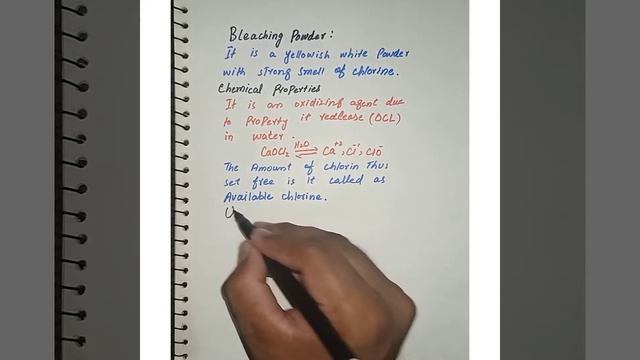 Bleaching Powder:
It is a yellowish white Powder
with strong smell of chlorine.
Chemical Properties
It is an oxidizing agent due
to Property it redlease (OCL)
in water.
CaOCl₂ ⇌ H₂O Ca⁺²; Cl⁻¹; ClO⁻
The Amount of chlorin Thus
set free is it called as
Available chlorine.
U